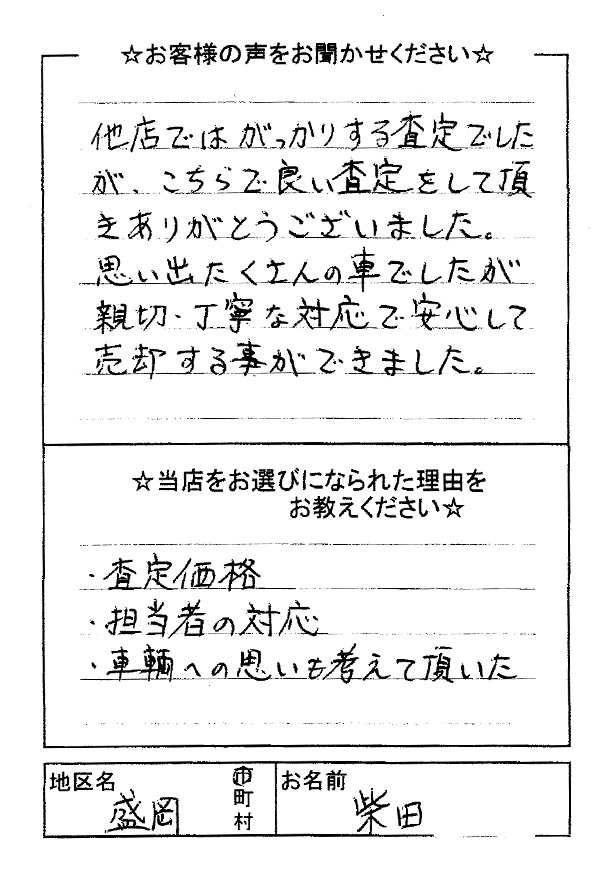 ☆お客様の声をお聞かせください☆
他店ではがっかりする査定でした
が、こちらで良い査定をして頂
きありがとうございました。
思い出たくさんの車でしたが
親切・丁寧な対応で安心して
売却する事ができました。
☆当店をお選びになられた理由を
お教えください☆
・査定価格
・担当者の対応
・車輌への思いも考えて頂いた
地区名
盛岡
市
町
村
お名前
柴田